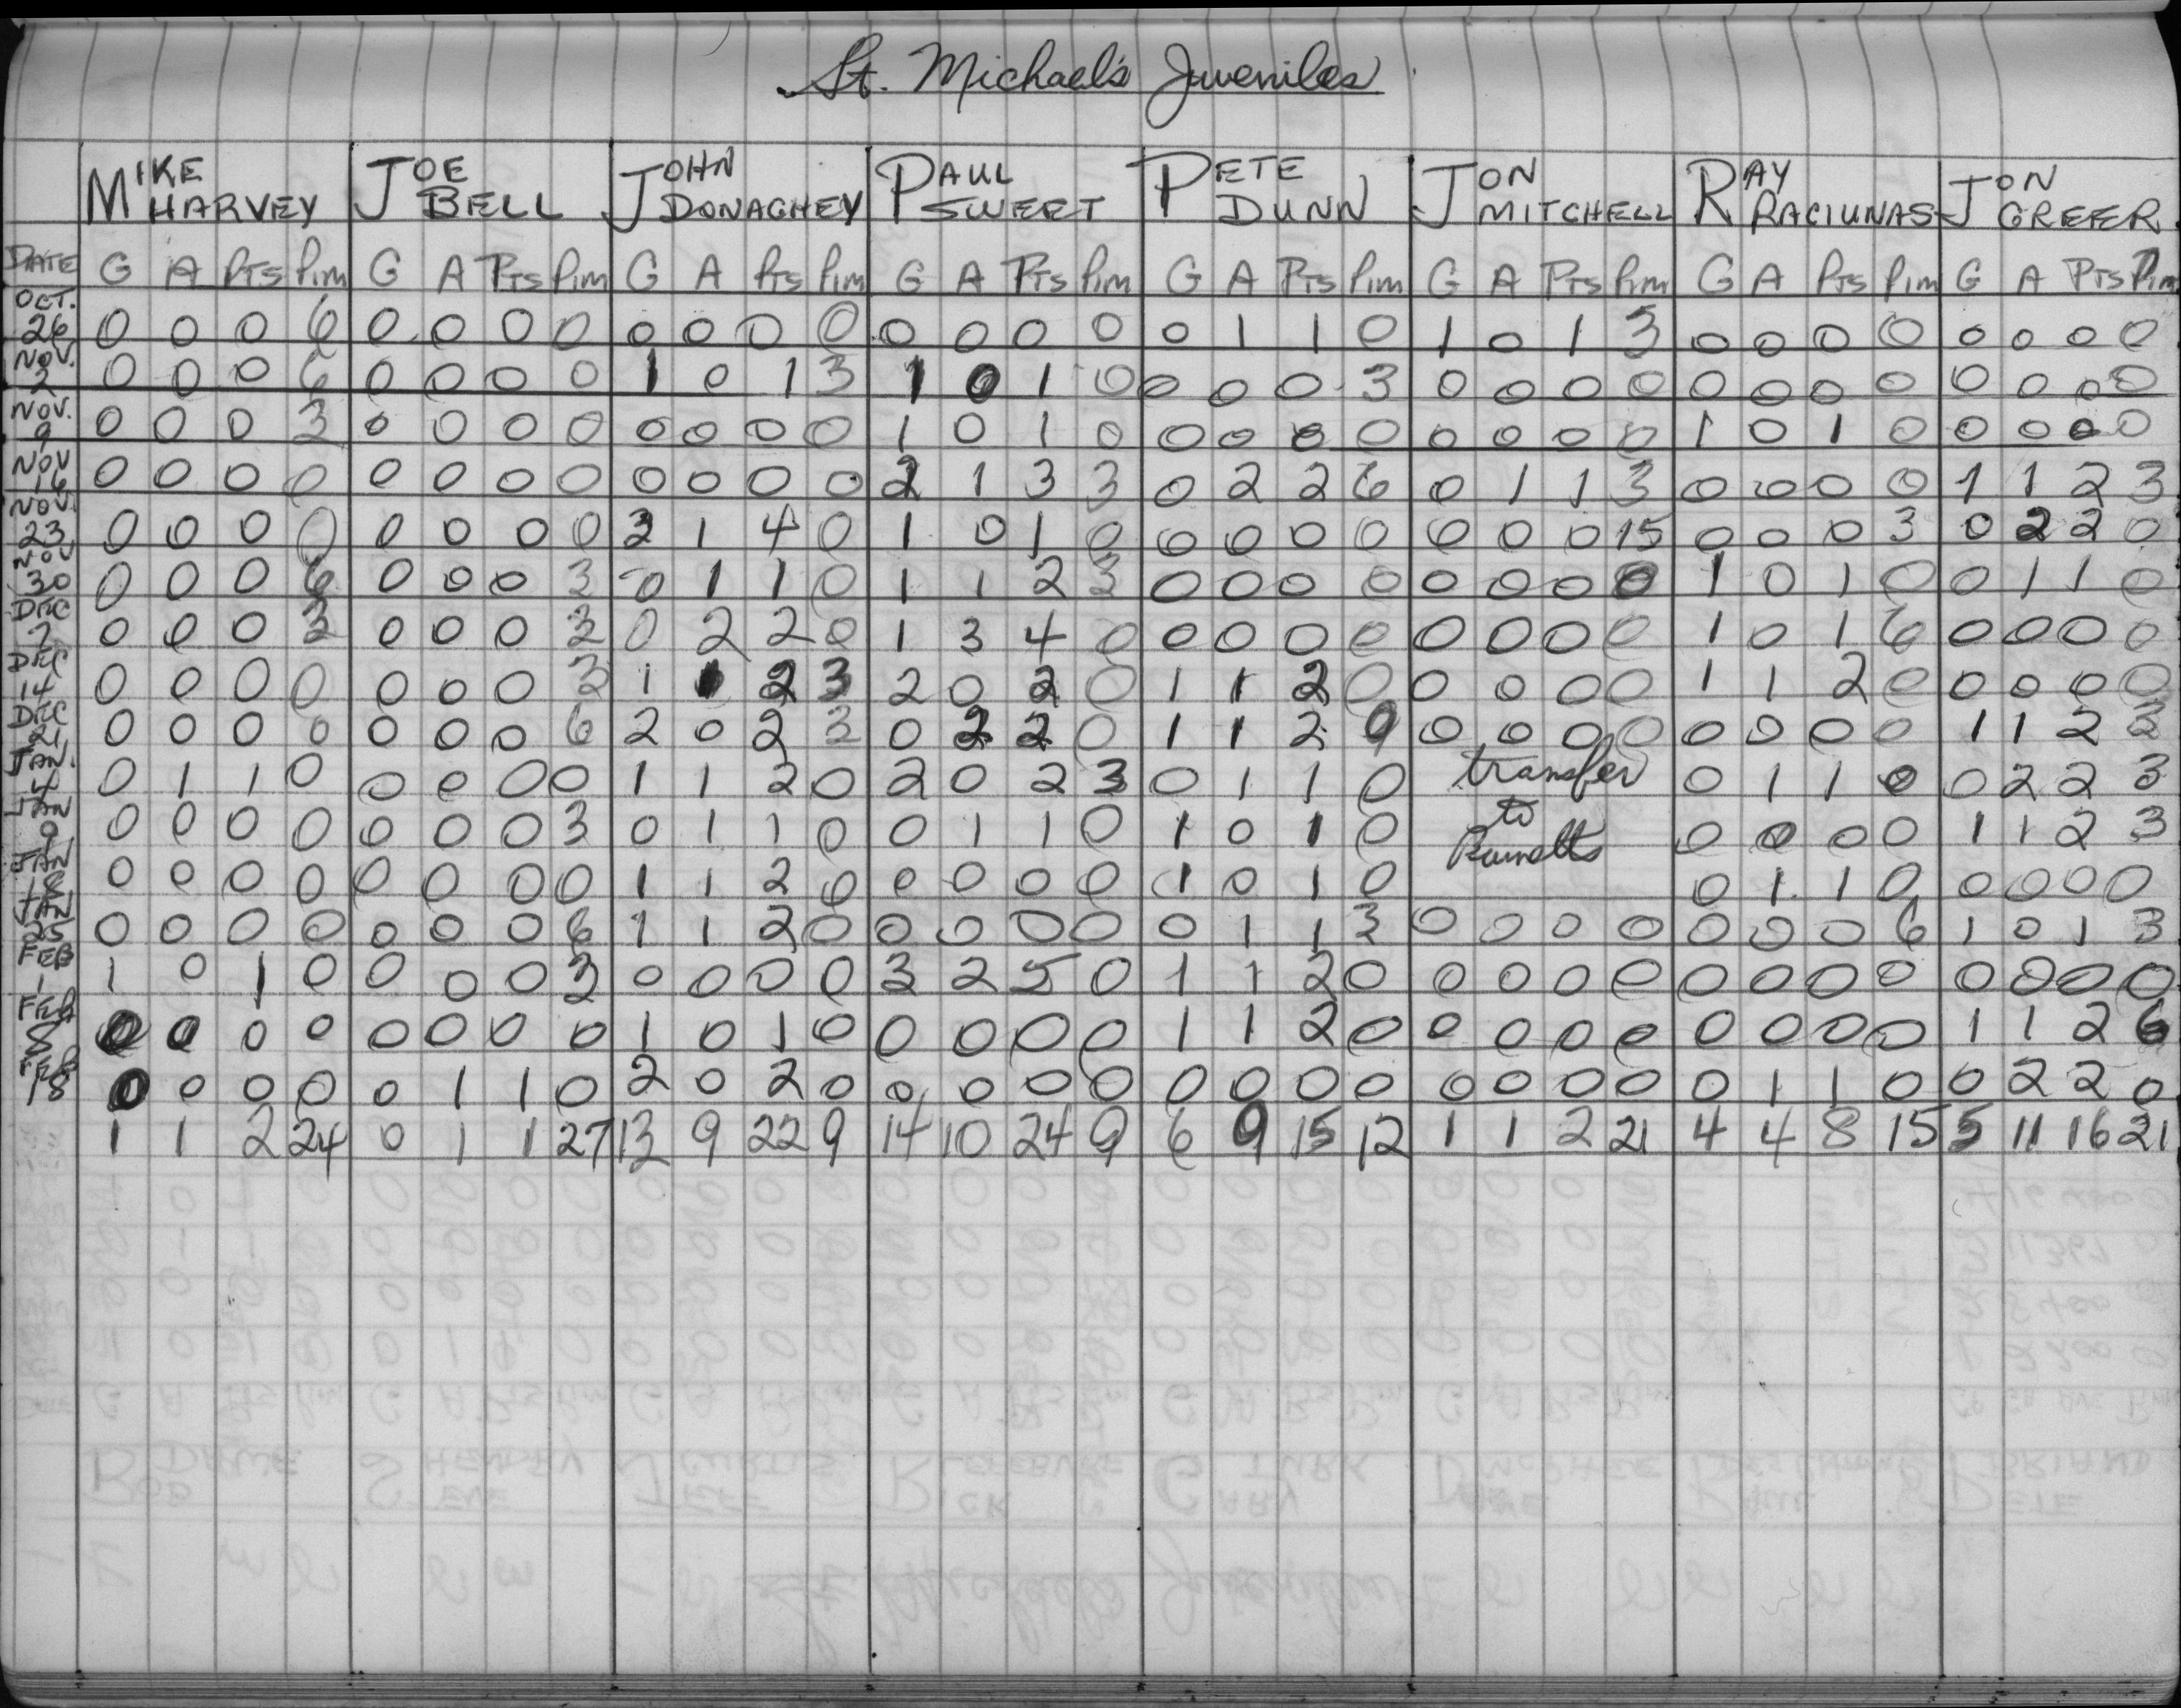 St. Michael's Juveniles
MIKE HARVEY JOE BELL JOHN DONAGHEY PAUL SWEET PETE DUNN JON MITCHELL RAY RACIUNAS JON GREFER
DATE G A PTS Pim G A PTS Pim G A PTS Pim G A PTS Pim G A PTS Pim G A PTS Pim G A PTS Pim G A PTS Pim
OCT. 26 0 0 0 6 0 0 0 0 0 0 0 0 0 0 0 0 0 1 1 0 1 0 1 3 0 0 0 0 0 0 0 0
NOV. 2 0 0 0 6 0 0 0 0 1 0 1 3 1 0 1 0 0 0 0 3 0 0 0 0 0 0 0 0 0 0 0 0
NOV. 9 0 0 0 3 0 0 0 0 0 0 0 0 1 0 1 0 0 0 0 0 0 0 0 0 1 0 1 0 0 0 0 0
NOV 16 0 0 0 0 0 0 0 0 0 0 0 0 2 1 3 3 0 2 2 6 0 1 1 3 0 0 0 0 1 1 2 3
NOV. 23 0 0 0 0 0 0 0 0 3 1 4 0 1 0 1 0 0 0 0 0 0 0 0 15 0 0 0 3 0 2 2 0
NOV 30 0 0 0 6 0 0 0 3 0 1 1 0 1 1 2 3 0 0 0 0 0 0 0 0 1 0 1 0 0 1 1 0
DEC 7 0 0 0 3 0 0 0 3 0 2 2 0 1 3 4 0 0 0 0 0 0 0 0 0 1 0 1 6 0 0 0 0
DEC 14 0 0 0 0 0 0 0 3 1 1 2 3 2 0 2 0 1 1 2 0 0 0 0 0 1 1 2 0 0 0 0 0
DEC 21 0 0 0 0 0 0 0 6 2 0 2 3 0 2 2 0 1 1 2 0 0 0 0 0 0 0 0 0 1 1 2 3
JAN. 4 0 1 1 0 0 0 0 0 1 1 2 0 2 0 2 3 0 1 1 0 transfer 0 1 1 0 0 2 2 3
JAN 9 0 0 0 0 0 0 0 3 0 1 1 0 0 1 1 0 1 0 1 0 to 0 0 0 0 1 1 2 3
JAN 18 0 0 0 0 0 0 0 0 1 1 2 0 0 0 0 0 1 0 1 0 0 1 1 0 0 0 0 0
JAN 25 0 0 0 0 0 0 0 6 1 1 2 0 0 0 0 0 0 1 1 3 0 0 0 0 0 0 0 6 1 0 1 3
FEB 1 1 0 1 0 0 0 0 3 0 0 0 0 3 2 5 0 1 1 2 0 0 0 0 0 0 0 0 0 0 0 0 0
FEB 8 0 0 0 0 0 0 0 0 1 0 1 0 0 0 0 0 1 1 2 0 0 0 0 0 0 0 0 0 1 1 2 6
FEB 18 0 0 0 0 0 1 1 0 2 0 2 0 0 0 0 0 0 0 0 0 0 0 0 0 0 1 1 0 0 2 2 0
1 1 2 24 0 1 1 27 13 9 22 9 14 10 24 9 6 9 15 12 1 1 2 21 4 4 8 15 5 11 16 21